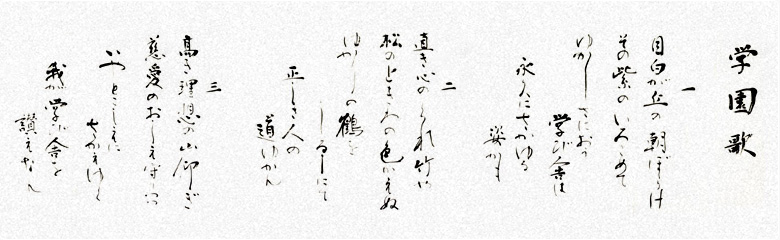 学園歌
一
目白が丘の朝ぼらけ
その紫のいろこめて
ゆかしさにおう
学び舎は
永久にさかゆる
姿かも
二
直き心のくれ竹や
松のときわの色かえぬ
ゆかりの鶴を
しるしにて
正しき人の
道ゆかん
三
高き理想の山仰ぎ
慈愛のおしえ守りつつ
いやとこしえに
さかえゆく
我が学び舎を
讃えなん